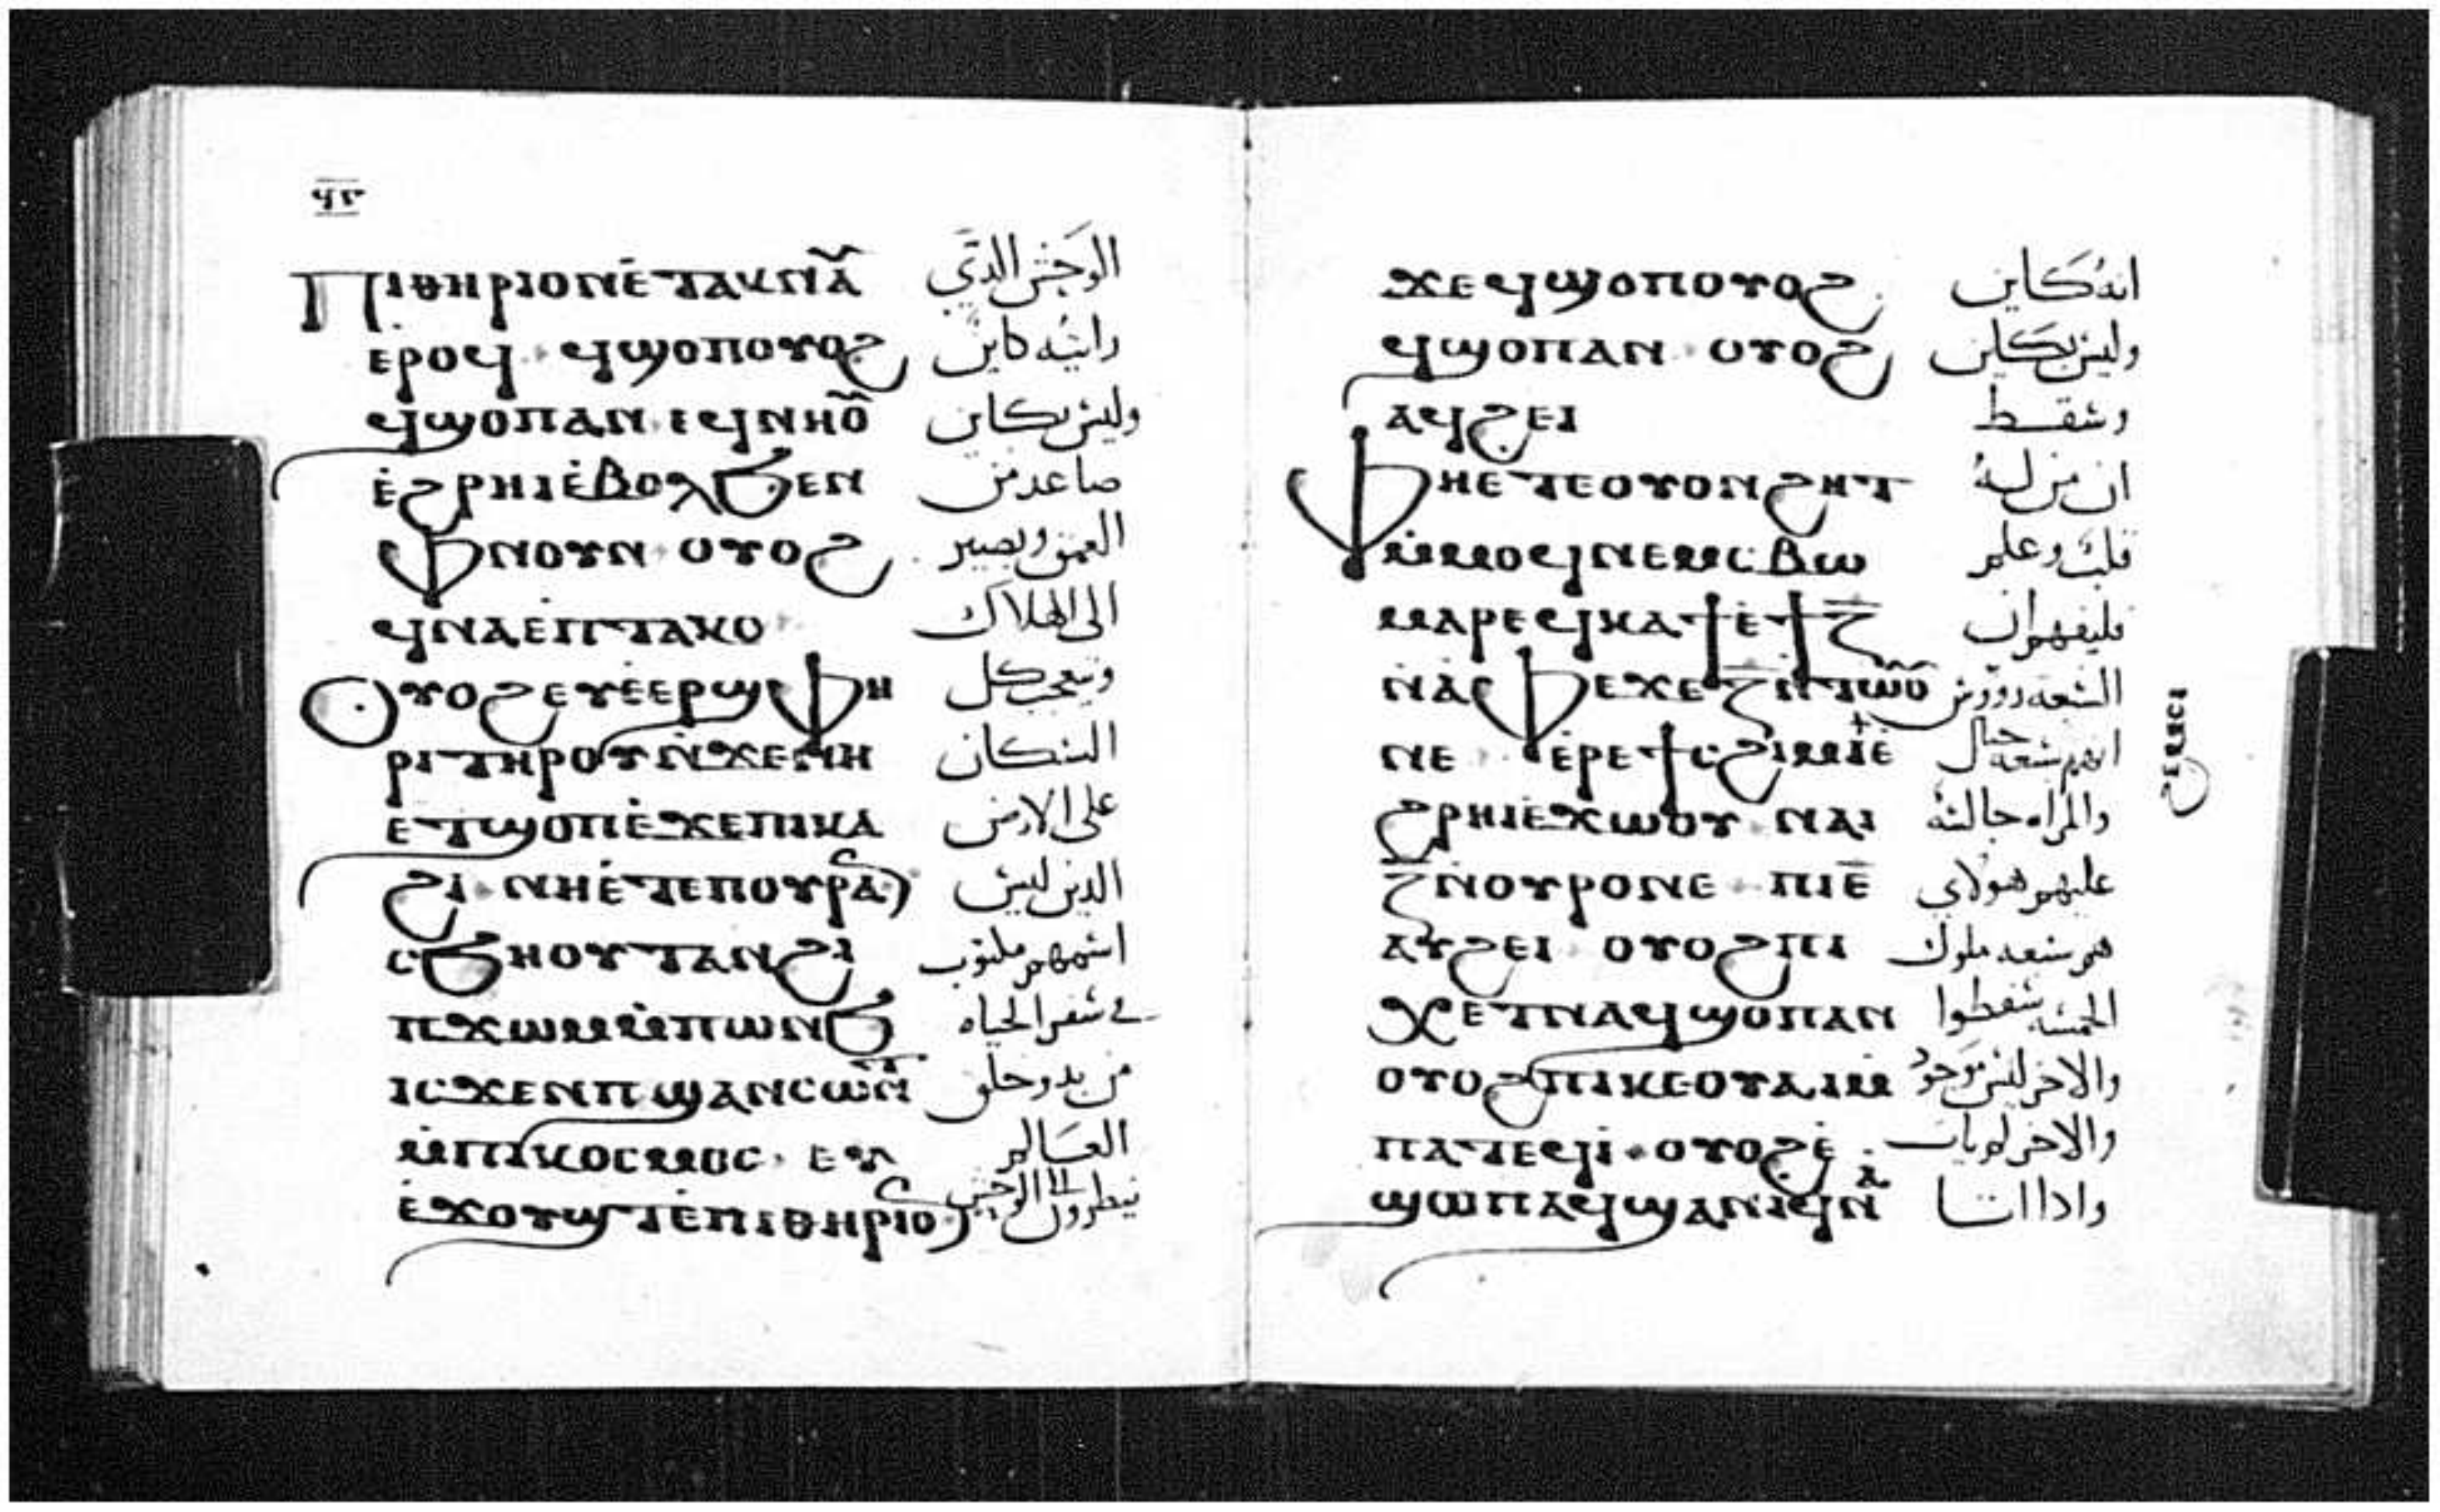 ⲡⲓⲑⲏⲣⲓⲟⲛ ⲉ̇ⲧⲁⲕⲛⲁ̅ⲩ الوحش الذي
ⲉ̇ⲣⲟϥ · ϥϣⲟⲡ ⲟⲩⲟϩ رايته كاين
ϥϣⲟⲡ ⲁⲛ · ⲉϥⲛⲏⲟ̅ⲩ وليس بكاين
ⲉ̇ϩⲣⲏⲓ ⲉ̇ⲃⲟⲗ ϧⲉⲛ صاعد من
ⲫⲛⲟⲩⲛ · ⲟⲩⲟϩ العمق ويصير
ϥⲛⲁ ⲉ̇ⲡⲧⲁⲕⲟ الى الهلاك
ⲟⲩⲟϩ ⲉⲩⲉ̇ⲉⲣϣⲫⲏ ويتعجب كل
ⲣⲓ ⲧⲏⲣⲟⲩ ⲛ̇ϫⲉ ⲛⲏ السكان
ⲉⲧϣⲟⲡ ⲉ̇ϫⲉⲛ ⲡⲕⲁ على الارض
ϩⲓ · ⲛⲏ ⲉ̇ⲧⲉ ⲡⲟⲩⲣⲁⲛ الذين ليس
ⲥϧⲏⲟⲩⲧ ⲁⲛ ϩⲓ اسمهم مكتوب
ⲡϫⲱⲙ ⲙ̇ⲡⲱⲛϧ في سفر الحياه
ⲓⲥϫⲉⲛ ⲡϣⲁⲛⲥⲱⲛⲧ من بدو خلق
ⲙ̇ⲡⲓⲕⲟⲥⲙⲟⲥ · ⲉⲩ العالم
ⲉ̇ϫⲟⲩϣⲧ ⲉ̇ⲡⲓⲑⲏⲣⲓⲟⲛ ينظرون الى الوحش
ϫⲉ ϥϣⲟⲡ ⲟⲩⲟϩ انه كاين
ϥϣⲟⲡ ⲁⲛ · ⲟⲩⲟϩ وليس بكاين
ⲁϥϩⲉⲓ وسقط
ⲫⲏ ⲉ̇ⲧⲉ ⲟⲩⲟⲛ ϩⲏⲧ ان من له
ⲙ̇ⲙⲟϥ ⲛⲉⲙ ⲥⲃⲱ قلب وعلم
ⲙⲁⲣⲉϥⲕⲁϯ ⲉ̇ϯⲍ̅ فليفهم ان
ⲛ̇ⲁ̇ⲫⲉ ϫⲉ ⲍ̅ ⲛ̇ⲧⲱⲟⲩ السبعه رووس
ⲛⲉ · ⲉ̇ⲣⲉ ϯⲥϩⲓⲙⲓ ⲉ̇ انهم سبعه جبال
ϩⲣⲏⲓ ⲉ̇ϫⲱⲟⲩ · ⲛⲁⲓ والمراه جالسه
ⲍ̅ ⲛ̇ⲟⲩⲣⲟ ⲛⲉ · ⲡⲓⲉ̅ عليهم هولاي
ⲁⲩϩⲉⲓ · ⲟⲩⲟϩ ⲡⲓ هم سبعه ملوك
ⲭⲉⲧ ⲛⲁϥϣⲟⲡ ⲁⲛ الخمسه سقطوا
ⲟⲩⲟϩ ⲡⲓⲕⲉⲟⲩⲁⲓ ⲙ̇ والاخر ليس موجود
ⲡⲁⲧⲉϥⲓ̇ · ⲟⲩⲟϩ ⲉ̇ والاخر لم يات
ϣⲱⲡ ⲁϥϣⲁⲛⲓ̇ ϥⲛⲁ واذا اتا
ϩⲉⲙⲥⲓ